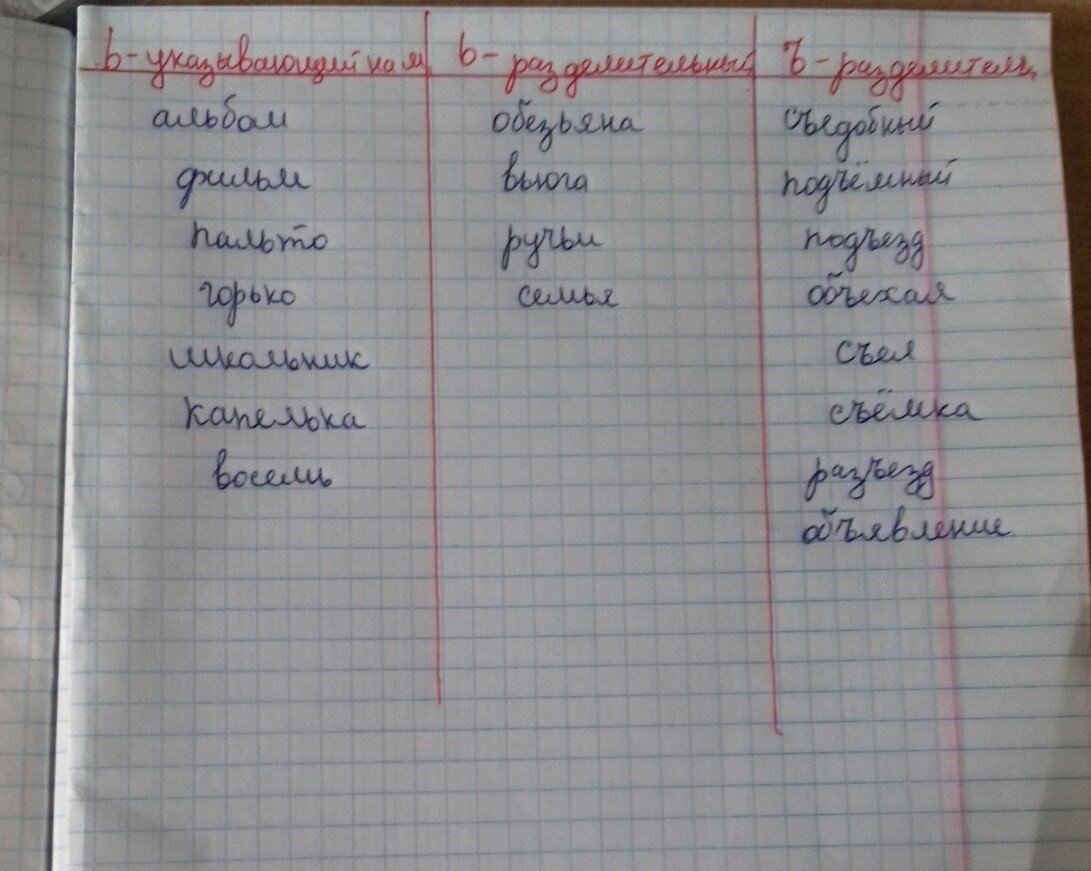 ь-указывающий на м ь - разделительный Ъ - разделительн
альбом обезьяна съедобный
фильм вьюга подъёмный
пальто ручьи подъезд
горько семья объехал
школьник съел
капелька съёмка
восемь разъезд
объявление